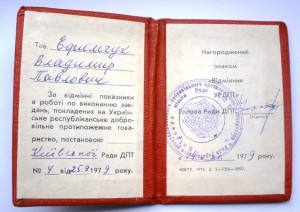 Тов. Ефимчук
Владимир
Павлович
За відмінні показники
в роботі по виконанню зав-
дань, покладених на Україн-
ське республіканське добро-
вільне протипожежне това-
риство, постановою
Київської Ради ДПТ
№ 4 від 25.9 1979 року.
Нагороджений
знаком
«Відмінник
УРДПТ»
Голова Ради ДПТ
1979 року.